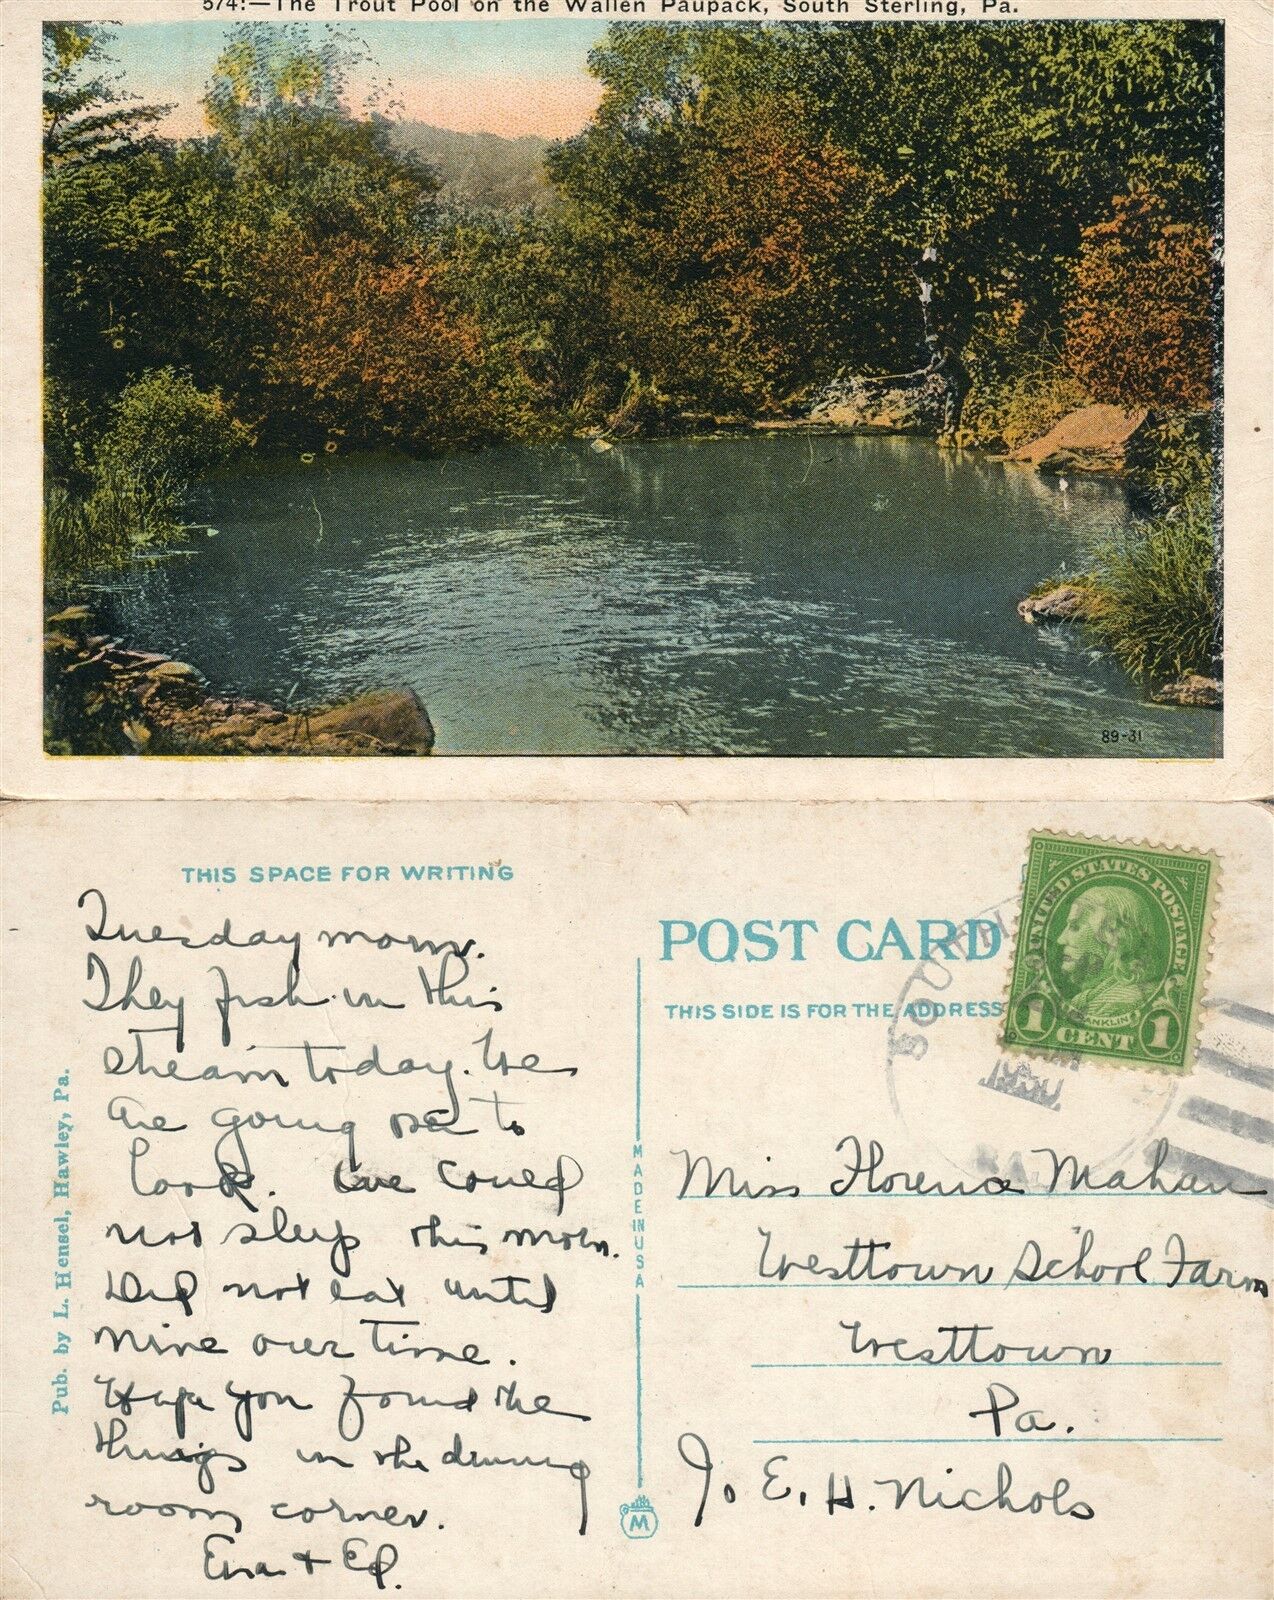 574:—The Trout Pool on the Wallen Paupack, South Sterling, Pa.
89-31
THIS SPACE FOR WRITING
Tuesday morn.
They fish in this
stream today. We
are going out to
look. We could
not sleep this morn.
Did not eat until
nine over time.
Hope you found the
things in the dining
room corner.
Eva + Ed.
Pub. by L. Hensel, Hawley, Pa.
MADE IN USA
M
POST CARD
THIS SIDE IS FOR THE ADDRESS
UNITED STATES POSTAGE
FRANKLIN
1 CENT 1
SOUTH
1930
PA.
Miss Florence Mahan
Westtown School Farm
Westtown
Pa.
E. H. Nichols